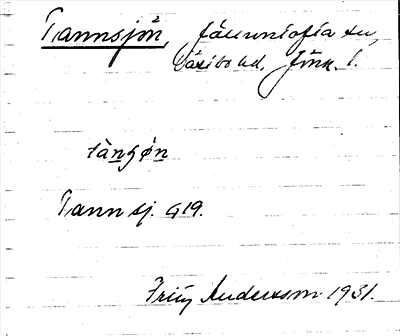 Tannsjön, Fåglaforsla sn,
Västbo hd, Jönk. l.
tànşøn
Tannsj. G19.
Fritz Andersson 1931.